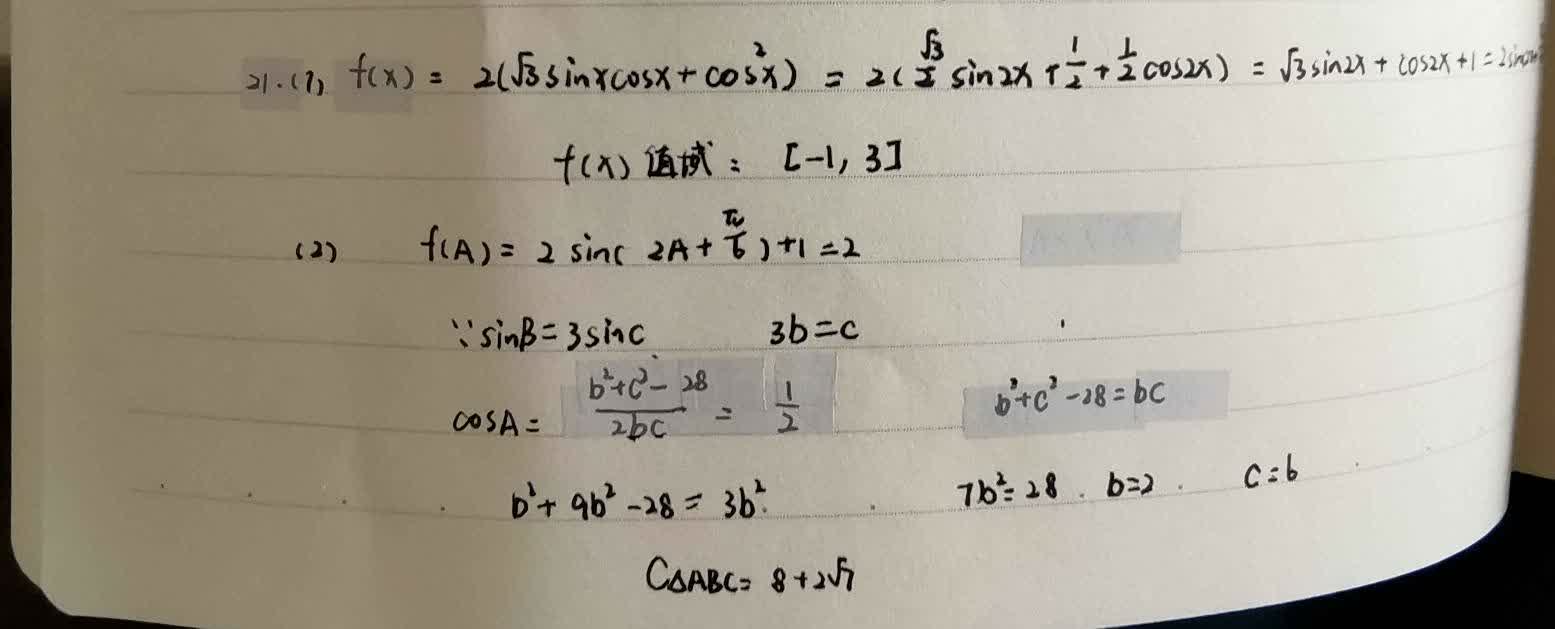 21.(1) f(x) = 2(√3sinxcosx + cos²x) = 2(√3/2 sin2x + 1/2 + 1/2 cos2x) = √3sin2x + cos2x + 1 = 2sin
f(x) 值域: [-1, 3]
(2) f(A) = 2 sin( 2A + π/6 ) + 1 = 2
∵ sinB = 3sinC 3b = c
cosA = (b²+c²-28)/(2bc) = 1/2 b²+c²-28 = bc
b² + 9b² - 28 = 3b². 7b² = 28. b=2. c=6
C△ABC = 8+2√7